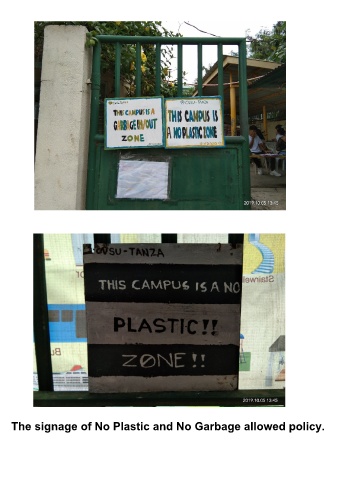 THIS CAMPUS IS A
GARBAGE IN/OUT
ZONE
THIS CAMPUS IS
A NO PLASTIC ZONE
2019.10.05 13:45
SU-TANZA
THIS CAMPUS IS A NO
PLASTIC!!
ZONE!!
Stairwel
Bu
2019.10.05 13:45
The signage of No Plastic and No Garbage allowed policy.